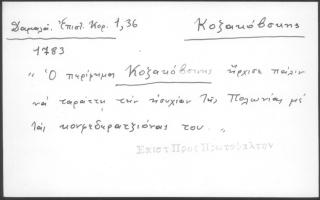 Δαμαλά. Ἐπιστ. Κορ. 1,36 Κοζακόβσκης
1783
" Ὁ περίφημος Κοζακόβσκης ἤρχισε πάλιν
νά ταράττῃ τήν ἡσυχίαν τῆς Πολωνίας μέ
τάς κονφεδερατζιόνας του. "
Επιστ Προς Πρωτοψάλτην